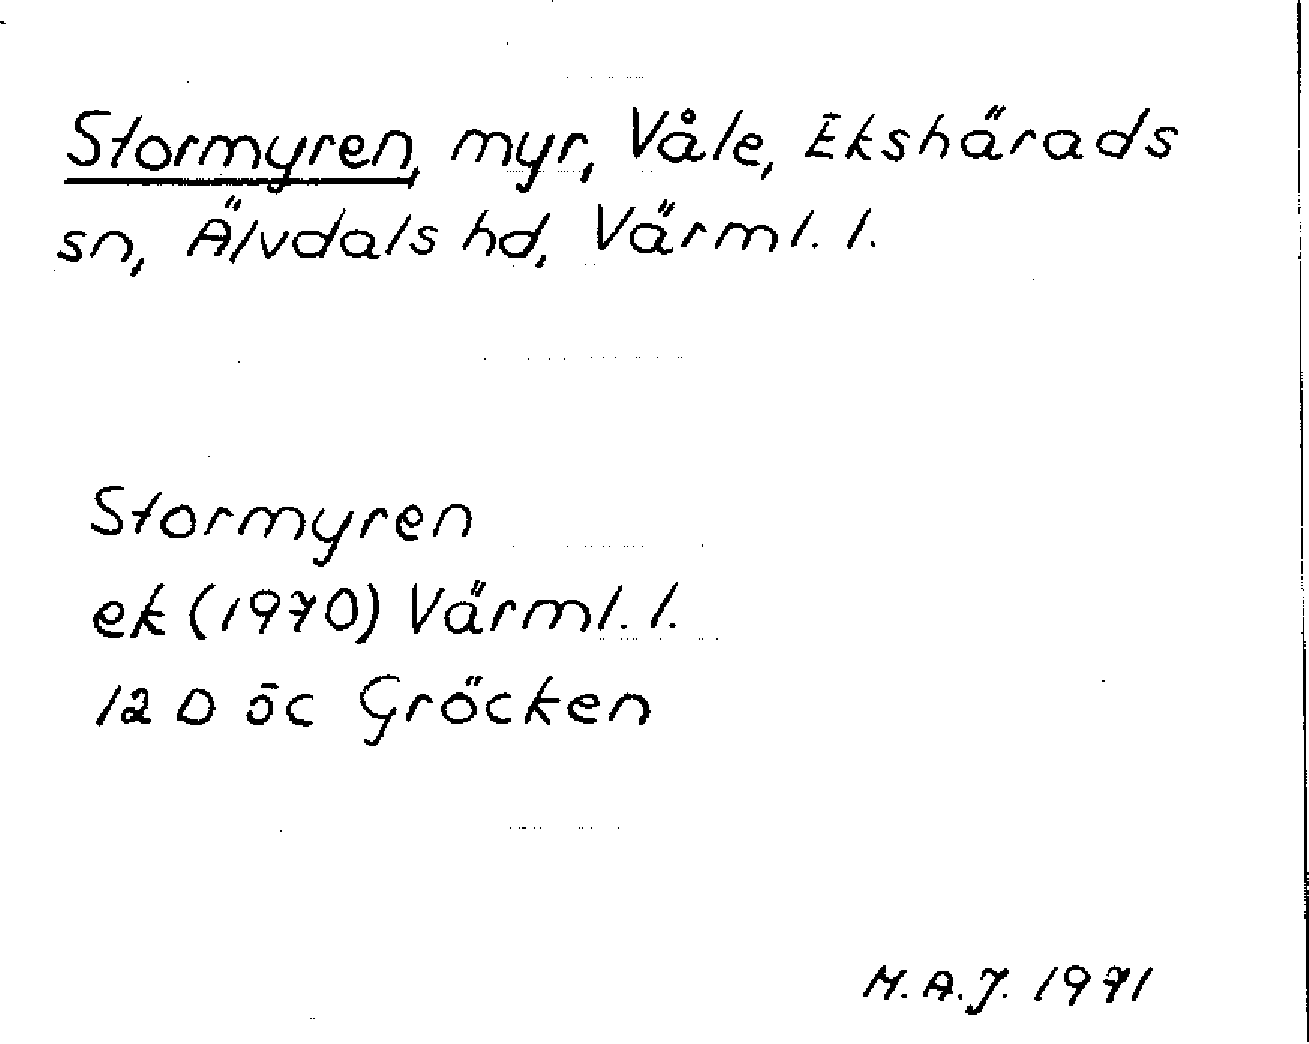 Stormyren, myr, Våle, Ekshärads
sn, Älvdals hd, Värml. l.
Stormyren
ek (1970) Värml. l.
12 D öc Gröcken
M.A.J. 1971